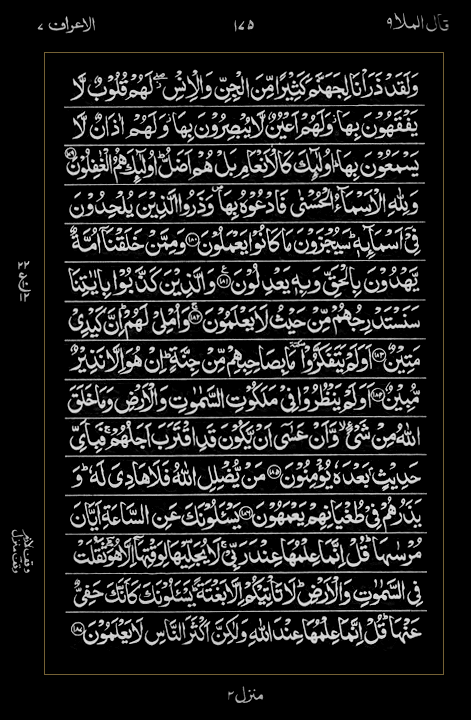 قال الملا ٩
١٧٥
الاعراف ٧
وَلَقَدْ ذَرَاْنَا لِجَهَنَّمَ كَثِيْرًا مِّنَ الْجِنِّ وَالْاِنْسِ ۖ لَهُمْ قُلُوْبٌ لَّا
يَفْقَهُوْنَ بِهَا ۫ وَلَهُمْ اَعْيُنٌ لَّا يُبْصِرُوْنَ بِهَا ۫ وَلَهُمْ اٰذَانٌ لَّا
يَسْمَعُوْنَ بِهَا ؕ اُولٰٓئِكَ كَالْاَنْعَامِ بَلْ هُمْ اَضَلُّ ؕ اُولٰٓئِكَ هُمُ الْغٰفِلُوْنَ ۝١٧٩
وَلِلّٰهِ الْاَسْمَآءُ الْحُسْنٰى فَادْعُوْهُ بِهَا ۪ وَذَرُوا الَّذِيْنَ يُلْحِدُوْنَ
فِيْٓ اَسْمَآئِهٖ ؕ سَيُجْزَوْنَ مَا كَانُوْا يَعْمَلُوْنَ ۝١٨٠ وَمِمَّنْ خَلَقْنَآ اُمَّةٌ
يَّهْدُوْنَ بِالْحَقِّ وَبِهٖ يَعْدِلُوْنَ ۝١٨١ ع وَالَّذِيْنَ كَذَّبُوْا بِاٰيٰتِنَا
سَنَسْتَدْرِجُهُمْ مِّنْ حَيْثُ لَا يَعْلَمُوْنَ ۝١٨٢ وَاُمْلِيْ لَهُمْ ؕ اِنَّ كَيْدِيْ
مَتِيْنٌ ۝١٨٣ اَوَلَمْ يَتَفَكَّرُوْا ٚ مَا بِصَاحِبِهِمْ مِّنْ جِنَّةٍ ؕ اِنْ هُوَ اِلَّا نَذِيْرٌ
مُّبِيْنٌ ۝١٨٤ اَوَلَمْ يَنْظُرُوْا فِيْ مَلَكُوْتِ السَّمٰوٰتِ وَالْاَرْضِ وَمَا خَلَقَ
اللّٰهُ مِنْ شَيْءٍ ۙ وَّاَنْ عَسٰٓى اَنْ يَّكُوْنَ قَدِ اقْتَرَبَ اَجَلُهُمْ ۚ فَبِاَيِّ
حَدِيْثٍۭ بَعْدَهٗ يُؤْمِنُوْنَ ۝١٨٥ مَنْ يُّضْلِلِ اللّٰهُ فَلَا هَادِيَ لَهٗ ؕ وَ
يَذَرُهُمْ فِيْ طُغْيَانِهِمْ يَعْمَهُوْنَ ۝١٨٦ يَسْـَٔلُوْنَكَ عَنِ السَّاعَةِ اَيَّانَ
مُرْسٰىهَا ؕ قُلْ اِنَّمَا عِلْمُهَا عِنْدَ رَبِّيْ ۚ لَا يُجَلِّيْهَا لِوَقْتِهَآ اِلَّا هُوَ ؔۘ ثَقُلَتْ
فِي السَّمٰوٰتِ وَالْاَرْضِ ؕ لَا تَاْتِيْكُمْ اِلَّا بَغْتَةً ؕ يَسْـَٔلُوْنَكَ كَاَنَّكَ حَفِيٌّ
عَنْهَا ؕ قُلْ اِنَّمَا عِلْمُهَا عِنْدَ اللّٰهِ وَلٰكِنَّ اَكْثَرَ النَّاسِ لَا يَعْلَمُوْنَ ۝١٨٧
منزل ٢